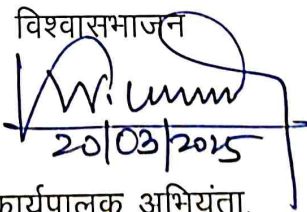 विश्वासभाजन
20/03/2025
कार्यपालक अभियंता,